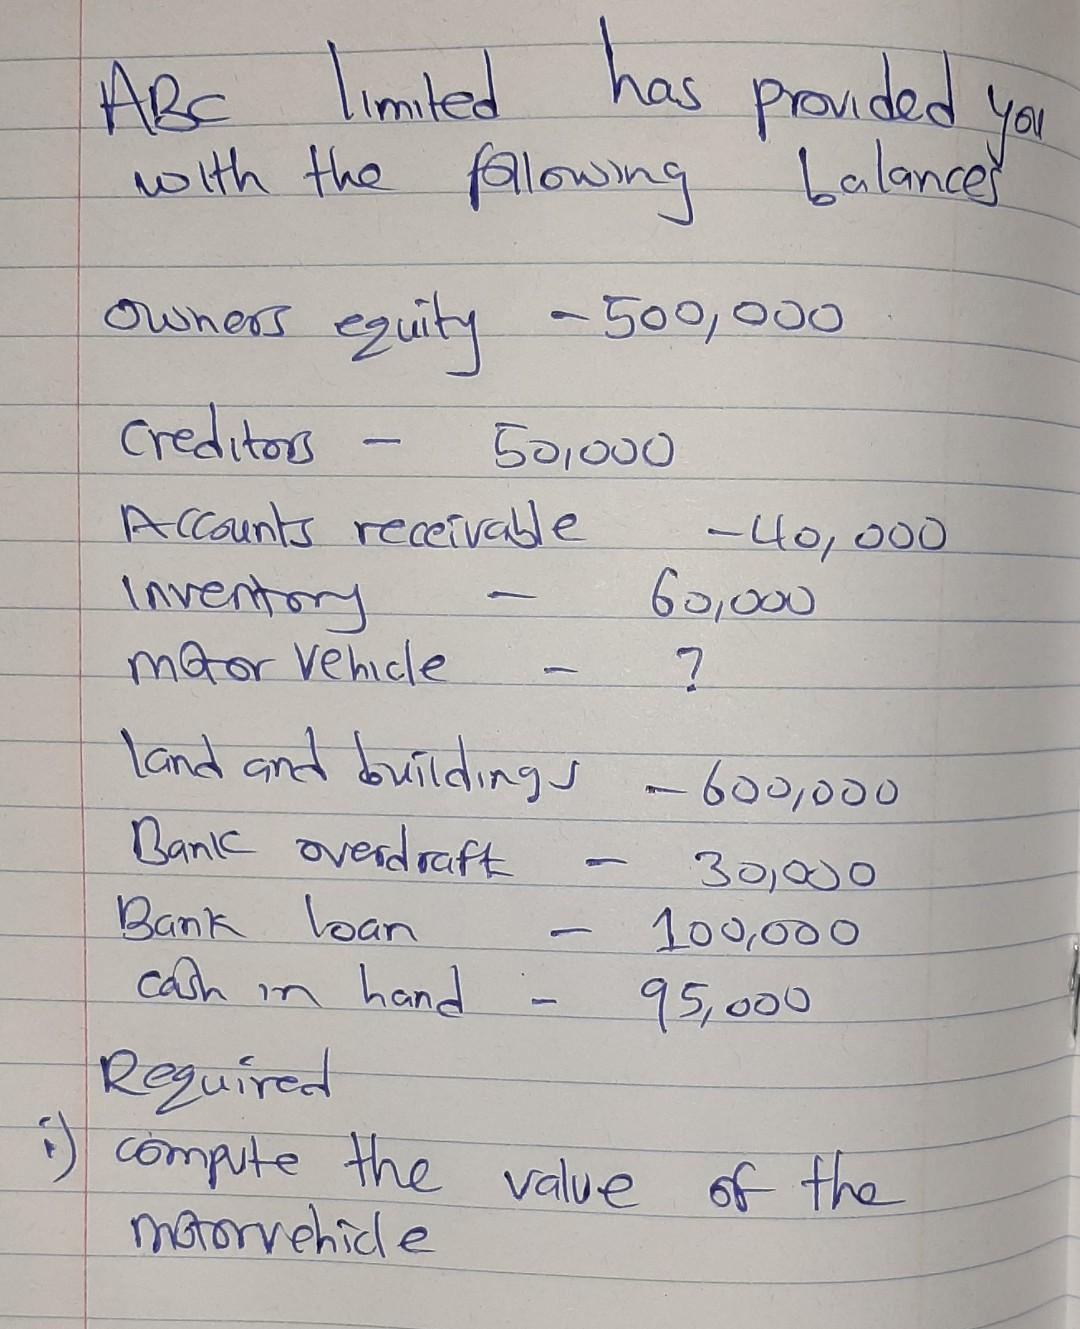 ABC limited has provided you
with the following balances
Owners equity - 500,000
Creditors - 50,000
Accounts receivable - 40,000
Inventory - 60,000
motor vehicle - ?
land and buildings - 600,000
Bank overdraft - 30,000
Bank loan - 100,000
cash in hand - 95,000
Required
i) compute the value of the
motorvehicle